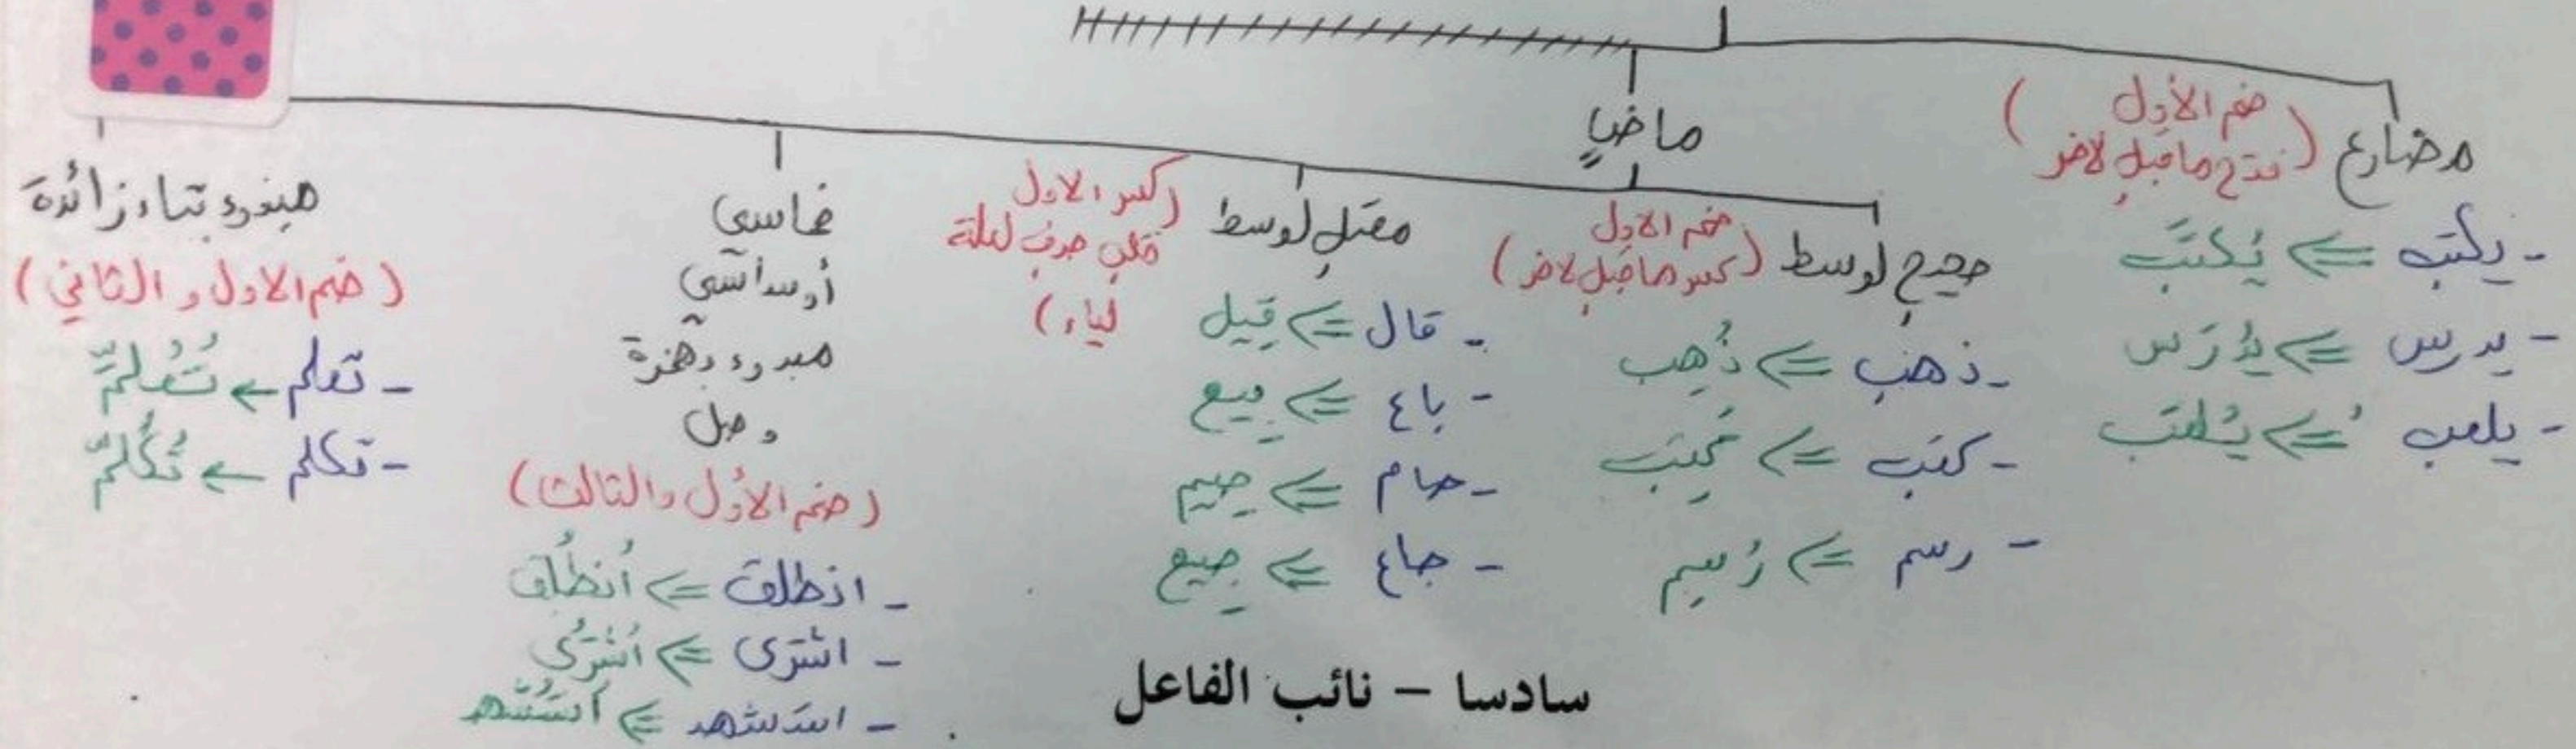 مضارع (ضم الأول
فتح ما قبل لاخر)
- يكتب ⇐ يُكتَب
- يدرس ⇐ يُدرَس
- يلعب ⇐ يُلعَب
ماضٍ
صحيح لوسط (ضم الاول
كسر ما قبل لاخر)
- ذهب ⇐ ذُهِب
- كتب ⇐ كُتِب
- رسم ⇐ رُسِم
معتل لوسط (كسر الاول
قلب حرف لعلة
لياء)
- قال ⇐ قِيل
- باع ⇐ بِيع
- صام ⇐ صِيم
- جاع ⇐ جِيع
خماسي
أو سداسي
مبدوء بهمزة
وصل
(ضم الأول والثالث)
- انطلق ⇐ اُنطُلق
- اشترى ⇐ اُشتُرى
- استشهد ⇐ اُستُشهد
مبدوء بتاء زائدة
(ضم الاول و الثاني)
- تعلم ← تُعُلمّ
- تكلم ← تُكُلمّ
سادسا – نائب الفاعل